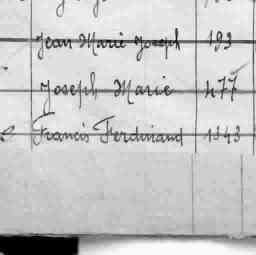 Jean Marie Joseph 193
Joseph Marie 477
Francis Ferdinand 1343